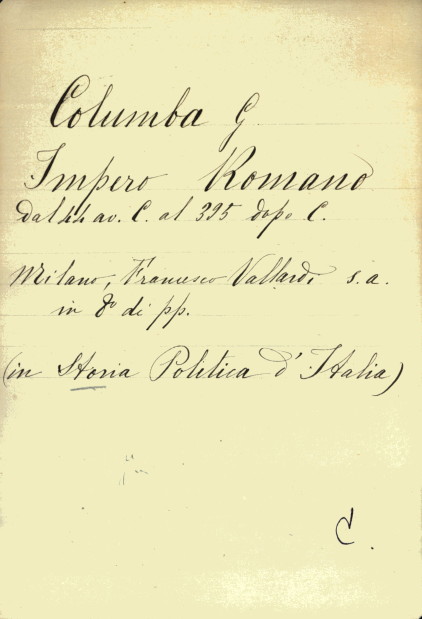 Columba G
Impero Romano
dal 44 av. C. al 395 dopo C.
Milano, Francesco Vallardi s. a.
in 8º di pp.
(in Storia Politica d'Italia)
C.